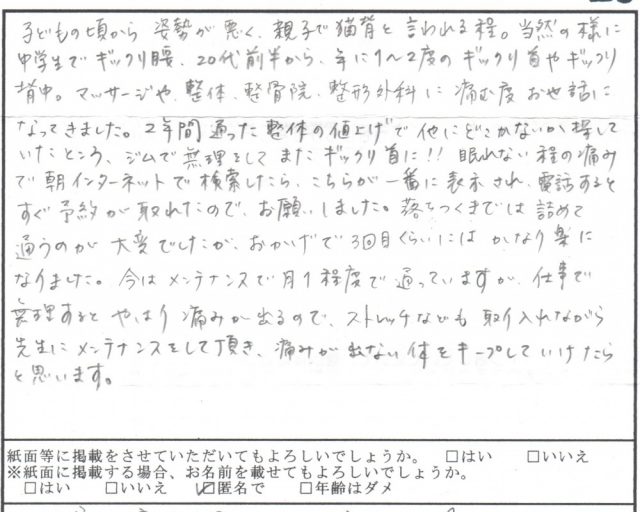 子どもの頃から 姿勢が悪く、親子で猫背と言われる程。当然の様に
中学生でギックリ腰、20代前半から、年に1〜2度のギックリ首やギックリ
背中。マッサージや、整体、整骨院、整形外科に痛む度お世話に
なってきました。2年間通った整体の値上げで他にどこかないか探して
いたところ、ジムで無理をしてまたギックリ首に!! 眠れない程の痛み
で朝インターネットで検索したら、こちらが一番に表示され、電話すると
すぐ予約が取れたので、お願いしました。落ちつくまでは詰めて
通うのが大変でしたが、おかげで3回目くらいにはかなり楽に
なりました。今はメンテナンスで月1程度で通っていますが、仕事で
無理するとやはり痛みが出るので、ストレッチなども取り入れながら
先生にメンテナンスをして頂き、痛みが出ない体をキープしていけたら
と思います。
紙面等に掲載をさせていただいてもよろしいでしょうか。 □はい □いいえ
※紙面に掲載する場合、お名前を載せてもよろしいでしょうか。
□はい □いいえ ☑匿名で □年齢はダメ